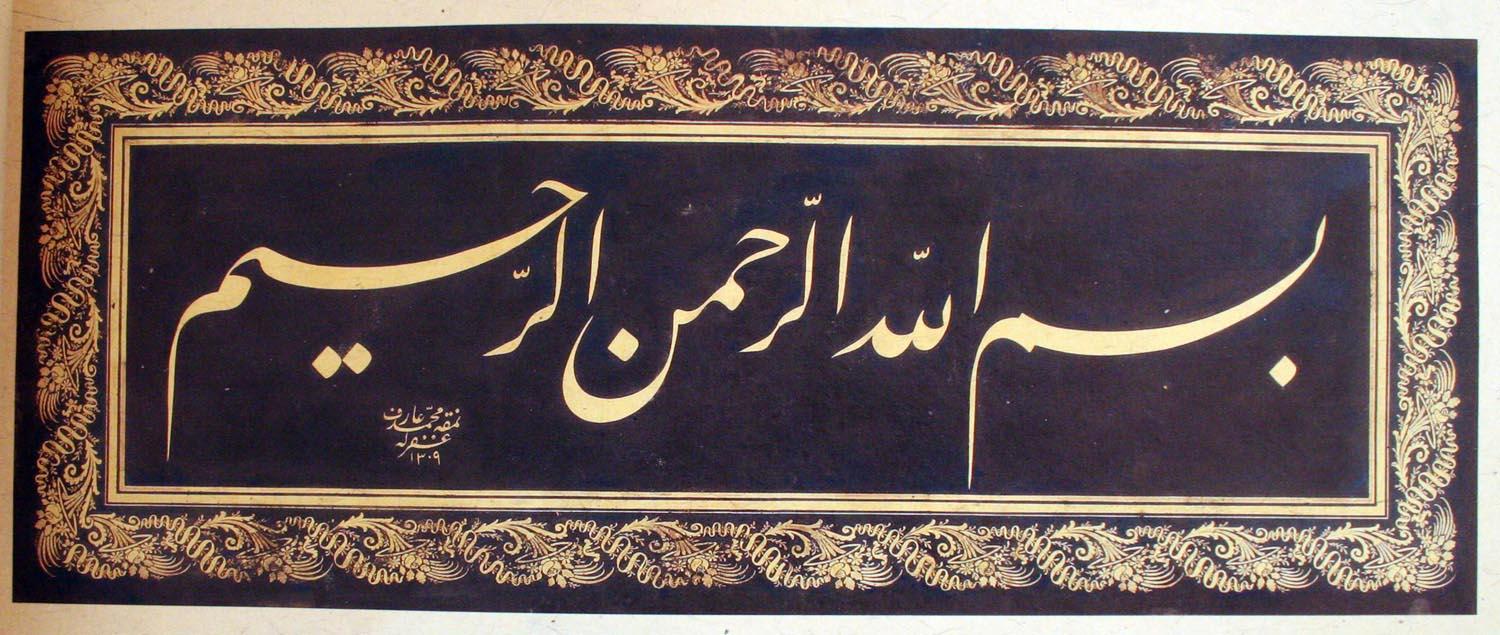 بسم اللّه الرّحمن الرّحيم
نمقه محمّد عارف
غفر له
١٣٠٩